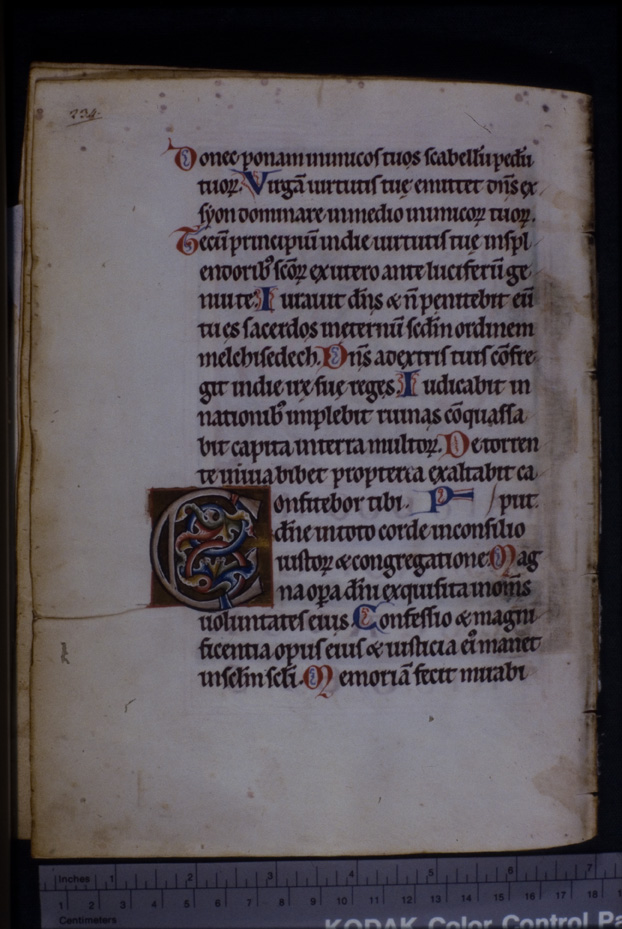 234.
Donec ponam inimicos tuos scabellū pedū
tuoꝝ. Virgā uirtutis tuę emittet dn̄s ex
syon dominare inmedio inimicoꝝ tuoꝝ.
Tecū principiū indie uirtutis tuę inspl
endorib᷒ scōꝝ exutero ante luciferū ge
nui te. Iurauit dn̄s & n̄ penitebit eū
tu es sacerdos ineternū scdm̄ ordinem
melchisedech. Dn̄s adextris tuis cōfre
git indie irę suę reges. Iudicabit in
nationib᷒ implebit ruinas cōquassa
bit capita interra multoꝝ. De torren
te inuia bibet propterea exaltabit ca
Confitebor tibi. P put.
dn̄e intoto corde inconsilio
iustoꝝ & congregatione. Mag
na opa dn̄i exquisita inom̄s
uoluntates eius. Confessio & magni
ficentia opus eius & iusticia ei᷒ manet
insclm̄ scli. Memoriā fecit mirabi
Inches 1 2 3 4 5 6 7
1 2 3 4 5 6 7 8 9 10 11 12 13 14 15 16 17 18
Centimeters
KODAK Color Control Pa